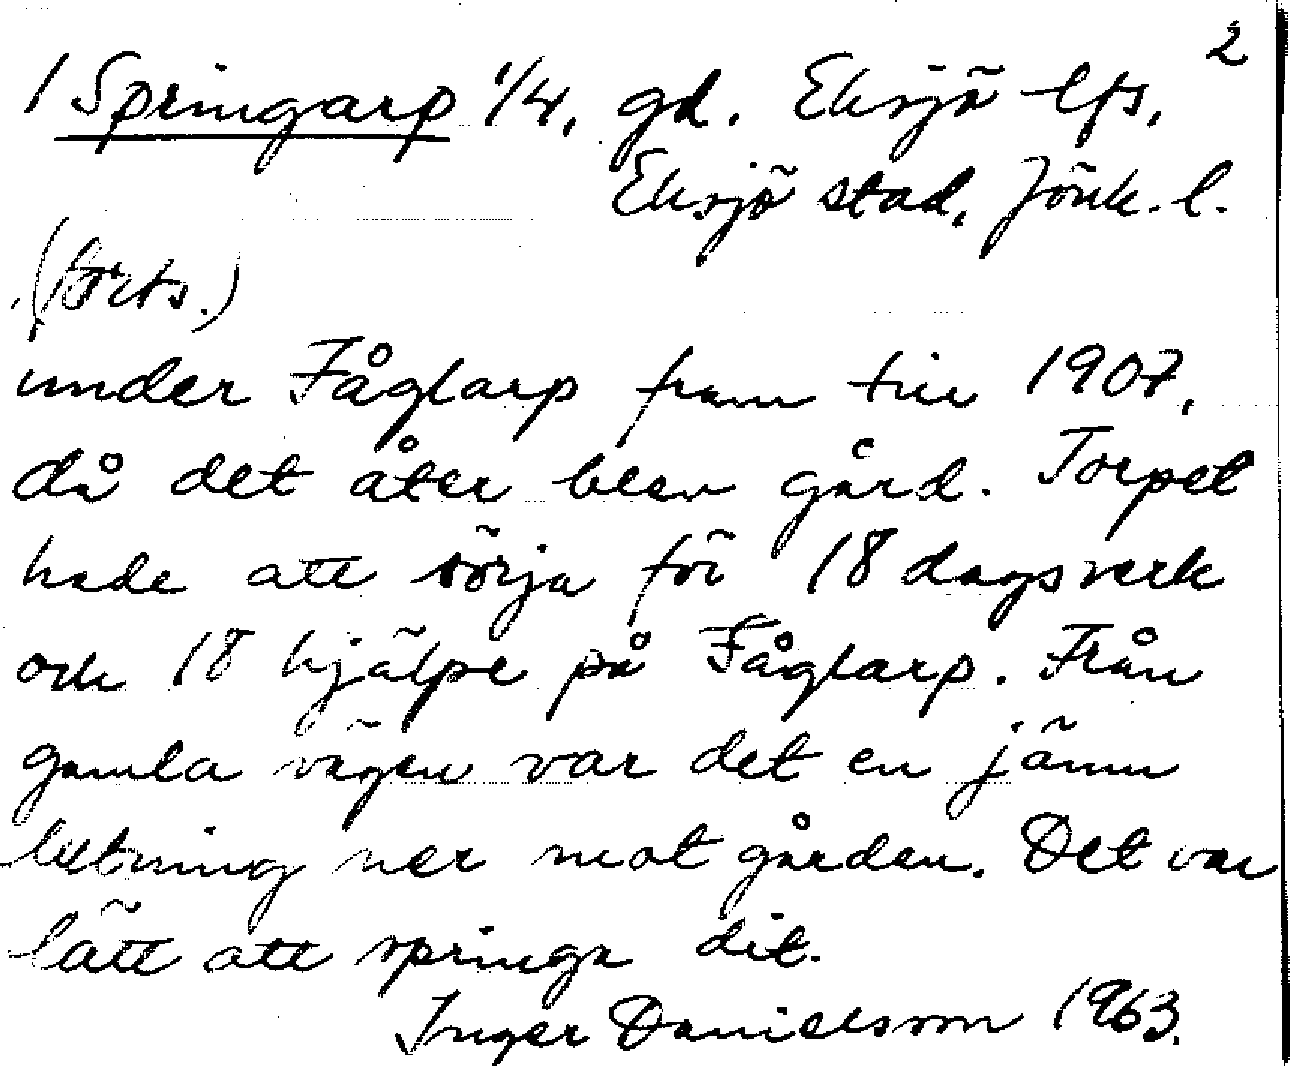 2
1 Springarp 1/4, gd. Eksjö lfs,
Eksjö stad, Jönk. l.
(forts.)
under Fåglarp fram till 1907,
då det åter blev gård. Torpet
hade att sörja för 18 dagsverk
och 18 hjälpe på Fåglarp. Från
gamla vägen var det en jämn
lutning ner mot gården. Det var
lätt att springa dit.
Inger Danielsson 1963.